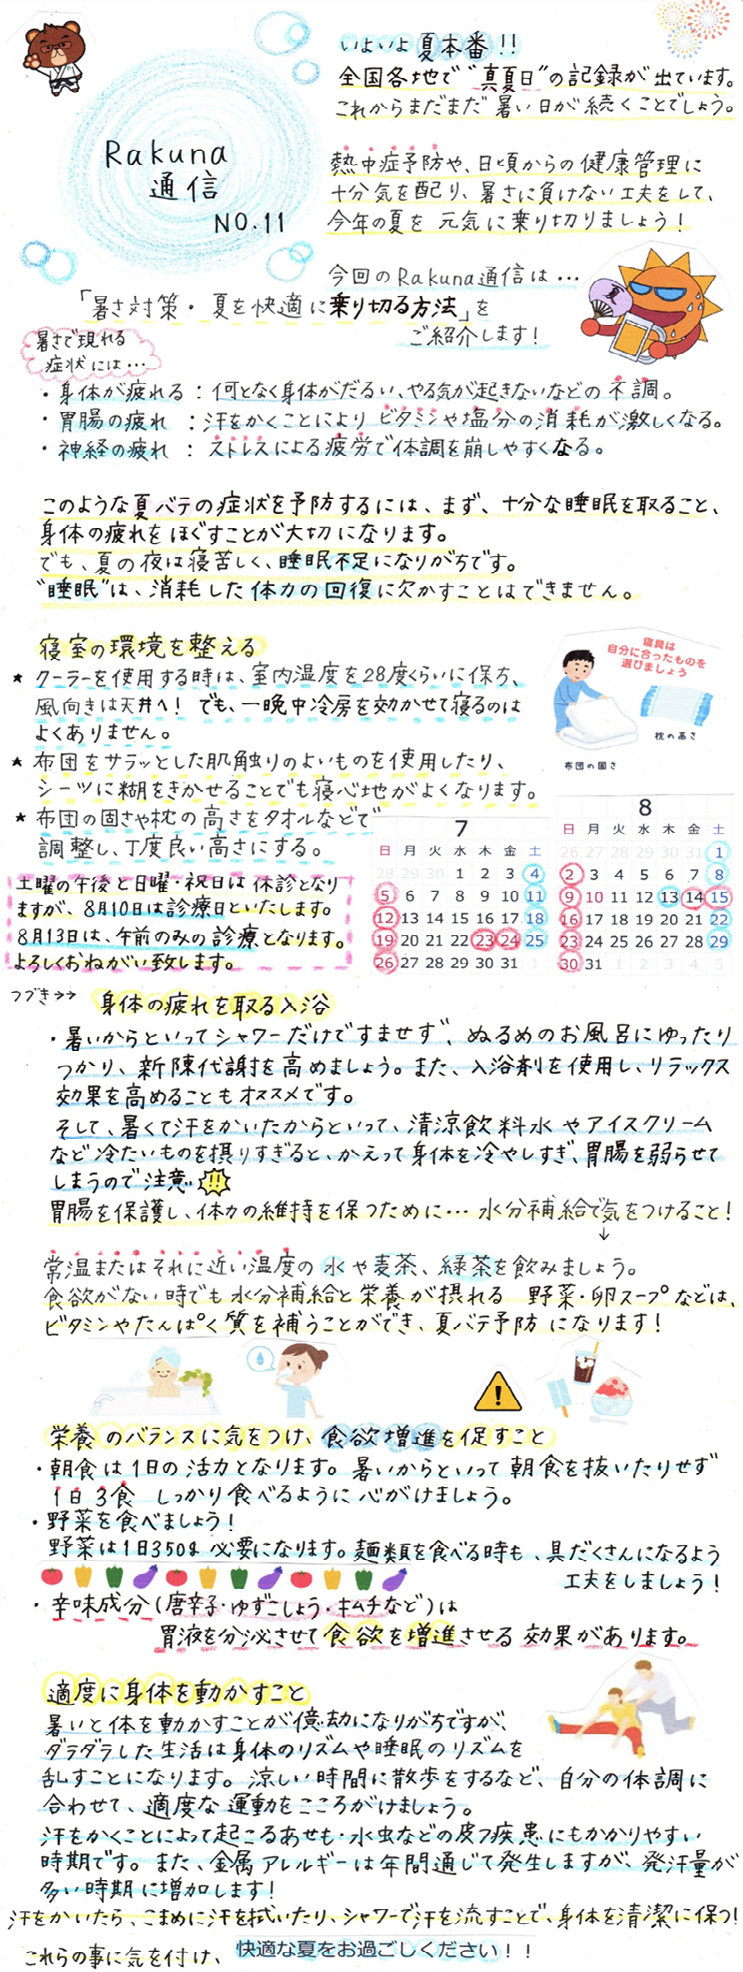 いよいよ夏本番!!
全国各地で“真夏日”の記録が出ています。
これからまだまだ暑い日が続くことでしょう。
Rakuna
通信
NO.11
熱中症予防や、日頃からの健康管理に
十分気を配り、暑さに負けない工夫をして、
今年の夏を元気に乗り切りましょう!
今回のRakuna通信は…
「暑さ対策・夏を快適に乗り切る方法」を
ご紹介します!
夏
暑さで現れる
症状には…
・身体が疲れる:何となく身体がだるい、やる気が起きないなどの不調。
・胃腸の疲れ:汗をかくことによりビタミンや塩分の消耗が激しくなる。
・神経の疲れ:ストレスによる疲労で体調を崩しやすくなる。
このような夏バテの症状を予防するには、まず、十分な睡眠を取ること、
身体の疲れをほぐすことが大切になります。
でも、夏の夜は寝苦しく、睡眠不足になりがちです。
“睡眠”は、消耗した体力の回復に欠かすことはできません。
寝室の環境を整える
★クーラーを使用する時は、室内温度を28度くらいに保ち、
風向きは天井へ!でも、一晩中冷房を効かせて寝るのは
よくありません。
★布団をサラッとした肌触りのよいものを使用したり、
シーツに糊をきかせることでも寝心地がよくなります。
★布団の固さや枕の高さをタオルなどで
調整し、丁度良い高さにする。
寝具は
自分に合ったものを
選びましょう
枕の高さ
布団の固さ
土曜の午後と日曜・祝日は休診となり
ますが、8月10日は診療日といたします。
8月13日は、午前のみの診療となります。
よろしくおねがい致します。
7
日 月 火 水 木 金 土
28 29 30 1 2 3 4
5 6 7 8 9 10 11
12 13 14 15 16 17 18
19 20 21 22 23 24 25
26 27 28 29 30 31 1
8
日 月 火 水 木 金 土
26 27 28 29 30 31 1
2 3 4 5 6 7 8
9 10 11 12 13 14 15
16 17 18 19 20 21 22
23 24 25 26 27 28 29
30 31 1 2 3 4 5
つづき→→
身体の疲れを取る入浴
・暑いからといってシャワーだけですませず、ぬるめのお風呂にゆったり
つかり、新陳代謝を高めましょう。また、入浴剤を使用し、リラックス
効果を高めることもオススメです。
そして、暑くて汗をかいたからといって、清涼飲料水やアイスクリーム
など冷たいものを摂りすぎると、かえって身体を冷やしすぎ、胃腸を弱らせて
しまうので注意!!
胃腸を保護し、体力の維持を保つために…水分補給で気をつけること!
↓
常温またはそれに近い温度の水や麦茶、緑茶を飲みましょう。
食欲がない時でも水分補給と栄養が摂れる 野菜・卵スープなどは、
ビタミンやたんぱく質を補うことができ、夏バテ予防になります!
栄養のバランスに気をつけ、食欲増進を促すこと
・朝食は1日の活力となります。暑いからといって朝食を抜いたりせず
1日3食 しっかり食べるように心がけましょう。
・野菜を食べましょう!
野菜は1日350g必要になります。麺類を食べる時も、具だくさんになるよう
工夫をしましょう!
・辛味成分(唐辛子・ゆずこしょう・キムチなど)は
胃液を分泌させて食欲を増進させる効果があります。
適度に身体を動かすこと
暑いと体を動かすことが億劫になりがちですが、
ダラダラした生活は身体のリズムや睡眠のリズムを
乱すことになります。涼しい時間に散歩をするなど、自分の体調に
合わせて、適度な運動をこころがけましょう。
汗をかくことによって起こるあせも・水虫などの皮フ疾患にもかかりやすい
時期です。また、金属アレルギーは年間通じて発生しますが、発汗量が
多い時期に増加します!
汗をかいたら、こまめに汗を拭いたり、シャワーで汗を流すことで、身体を清潔に保つ!
これらの事に気を付け、快適な夏をお過ごしください!!